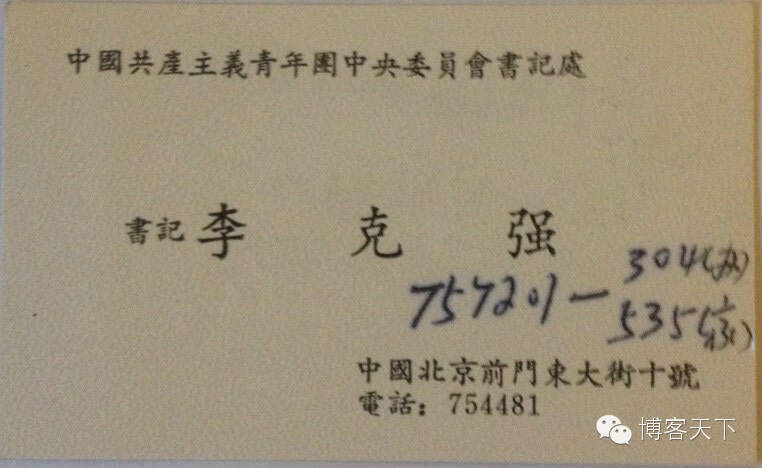 中國共產主義青年團中央委員會書記處
書記 李 克 强
757201－304(办)
535(宿)
中國北京前門東大街十號
電話：754481
博客天下